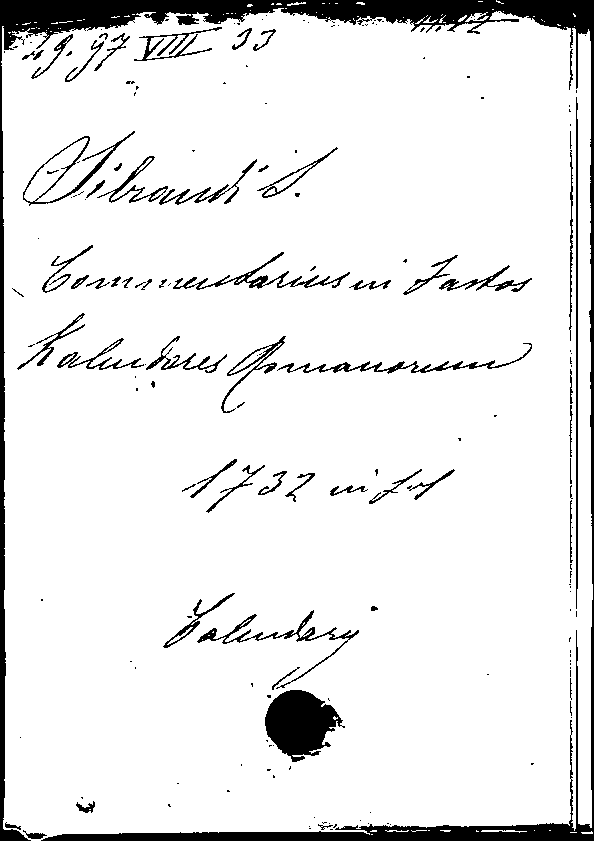 29. 97 VIII 33
Sibrandi S.
Commentarius in Fastos
Kalendares Romanorum
1732 in fol
Kalendarz